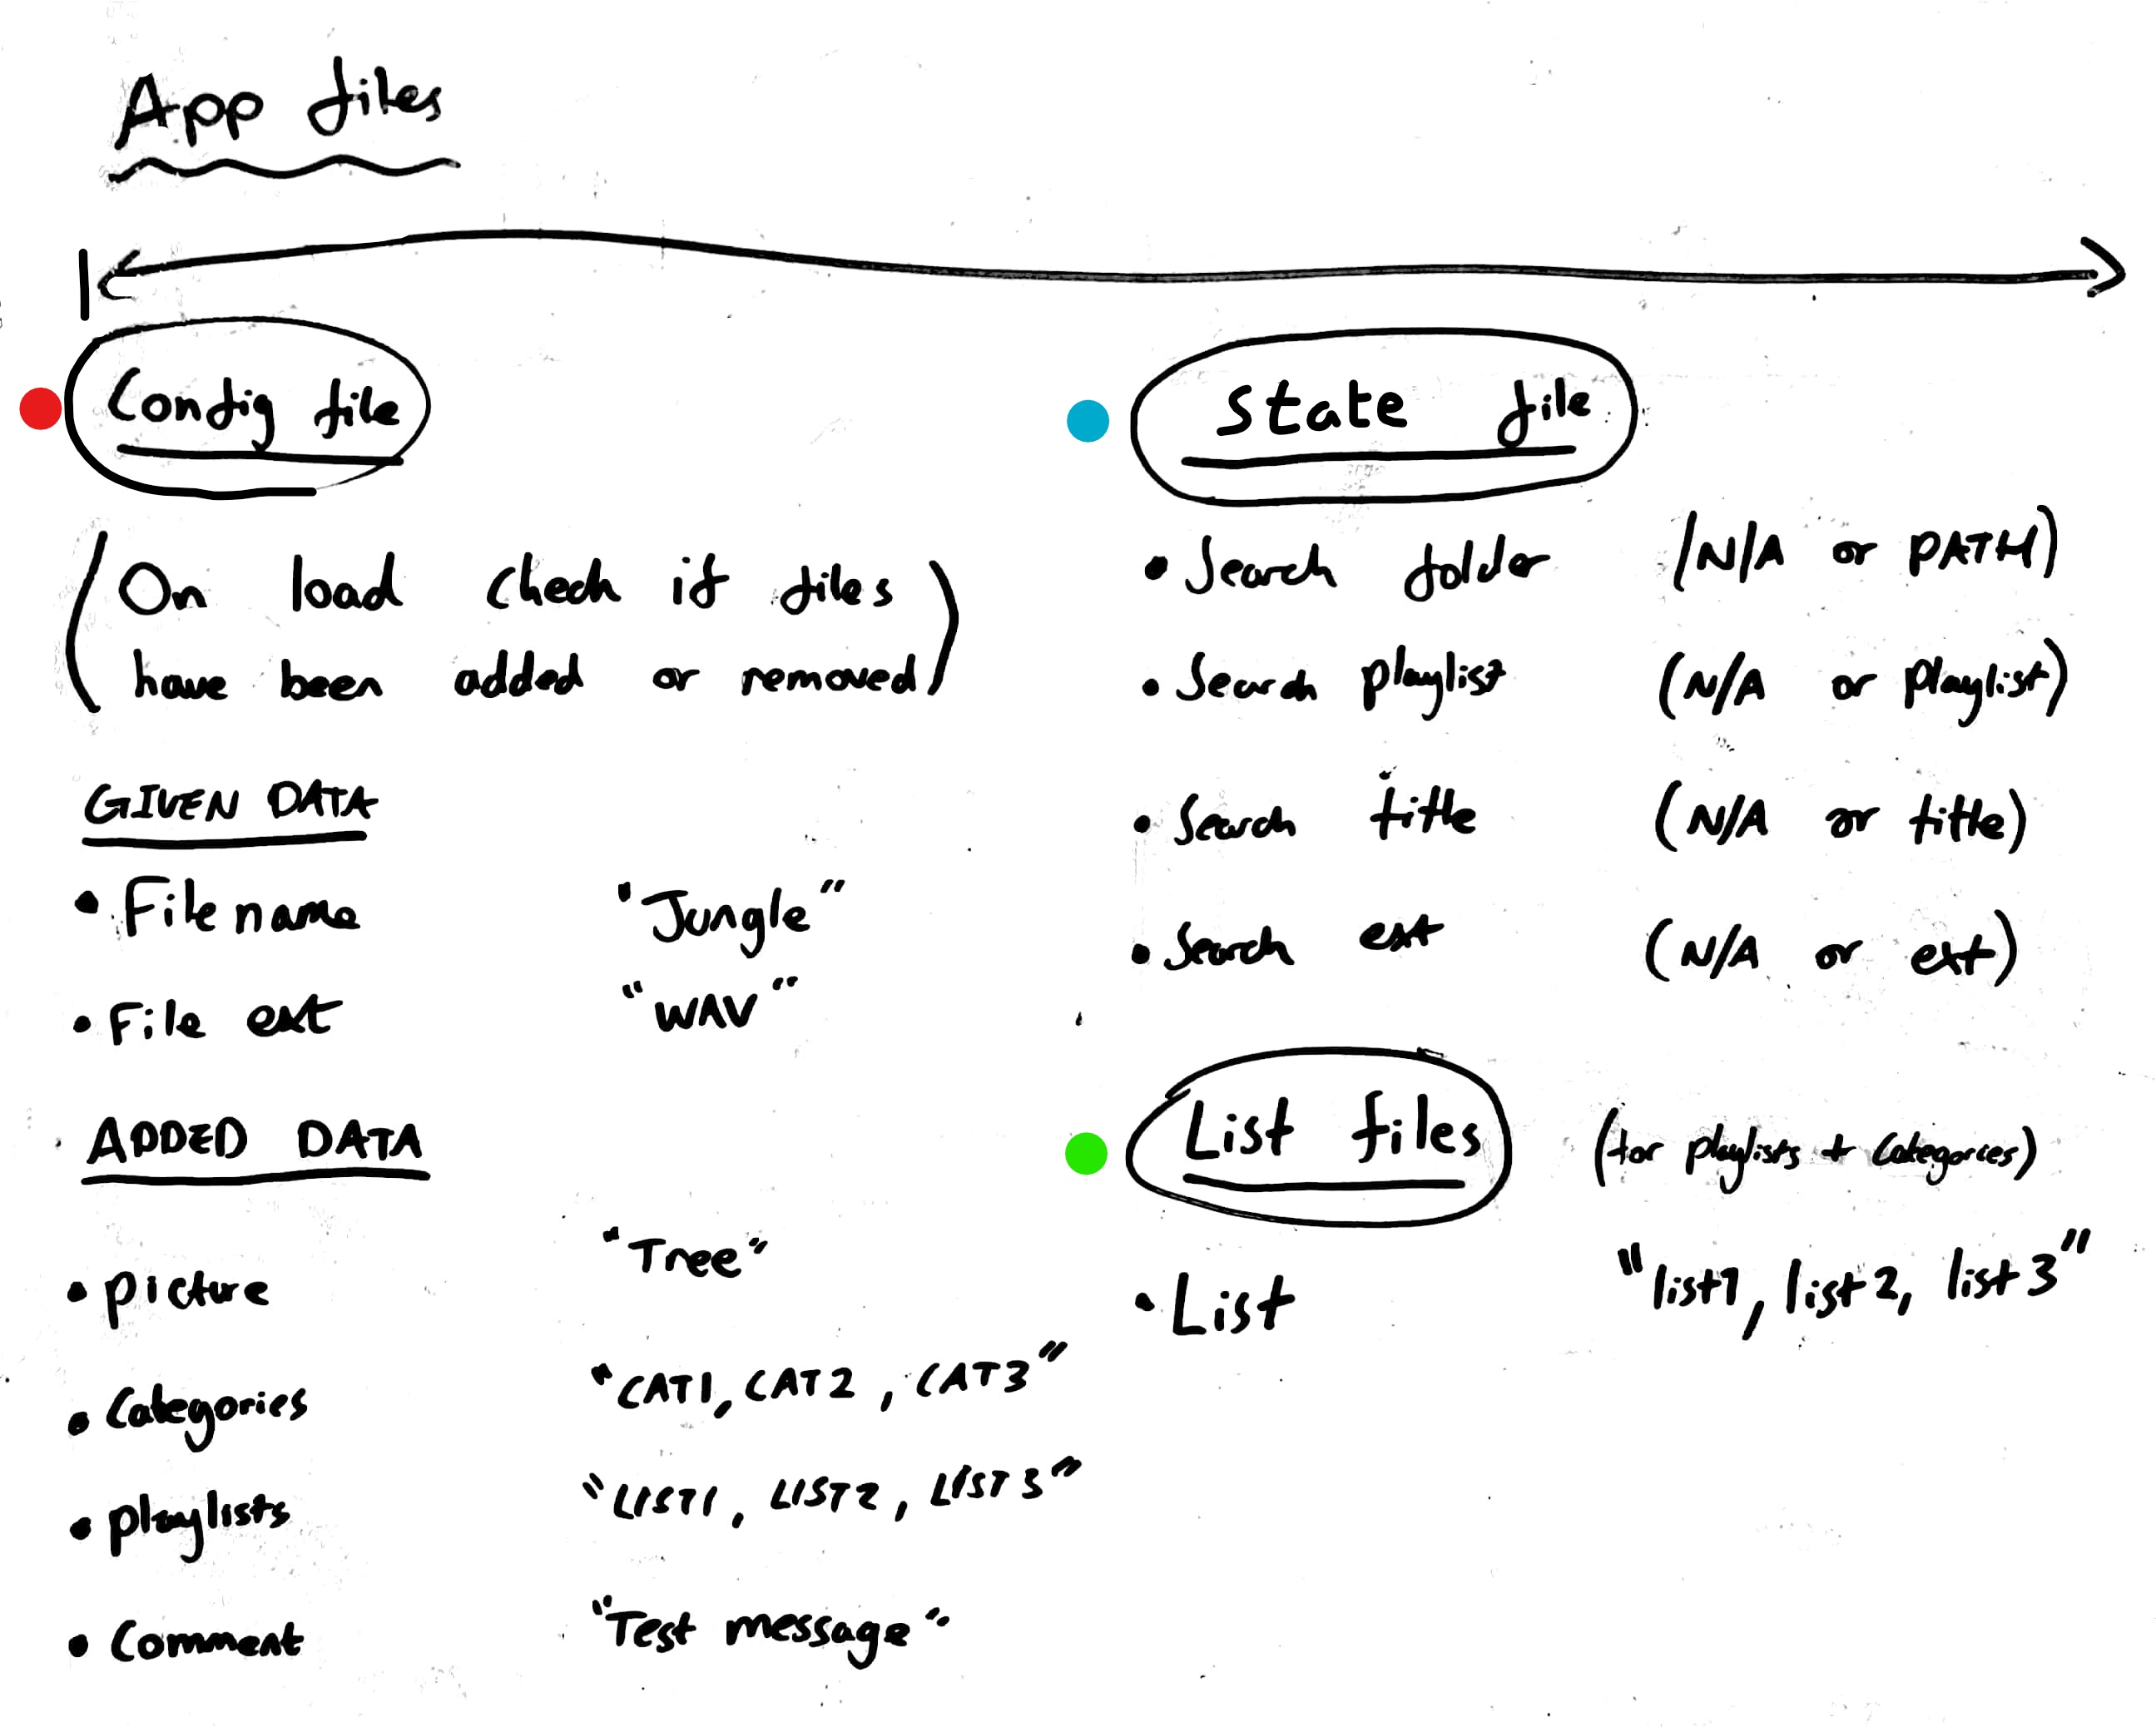 App files
Config file
(On load check if files
have been added or removed)
GIVEN DATA
• Filename "Jungle"
• File ext "WAV"
ADDED DATA
• Picture "Tree"
• Categories "CAT1, CAT2, CAT3"
• playlists "LIST1, LIST2, LIST3"
• Comment "Test message"
State file
• Search folder (N/A or PATH)
• Search playlist (N/A or playlist)
• Search title (N/A or title)
• Search ext (N/A or ext)
List files (for playlists + Categories)
• List "list1, list2, list3"